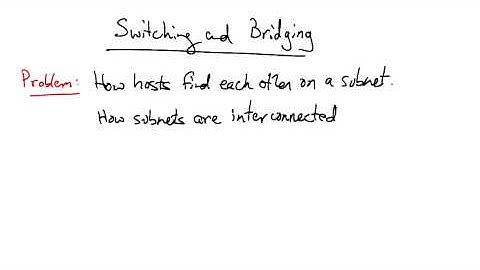 Switching and Bridging
Problem: How hosts find each other on a subnet.
How subnets are interconnected